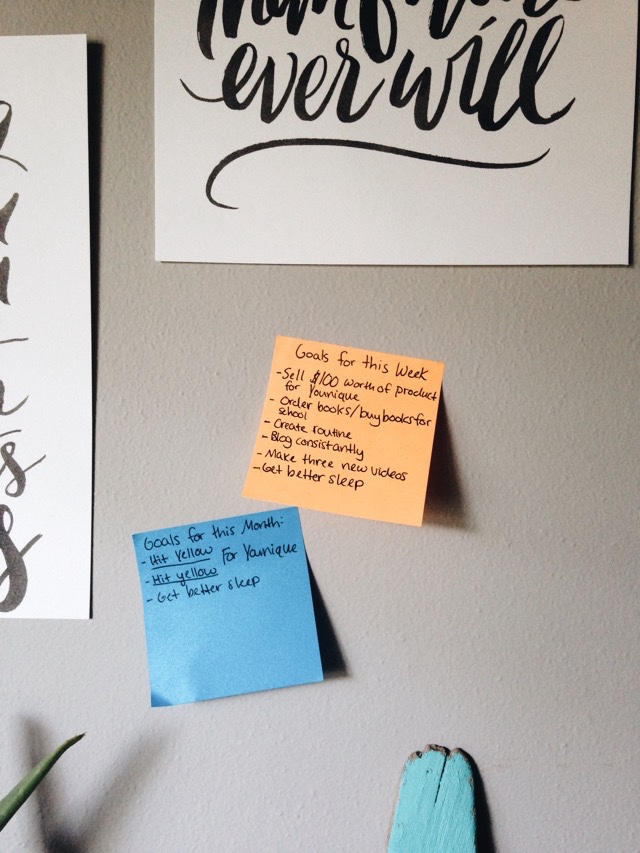 ever will
Goals for this Week
-Sell $100 worth of product
for Younique
- Order books/buy books for
school
- Create routine
- Blog consistantly
- Make three new videos
- Get better sleep
Goals for this Month:
- Hit Yellow for Younique
- Hit yellow
- Get better sleep